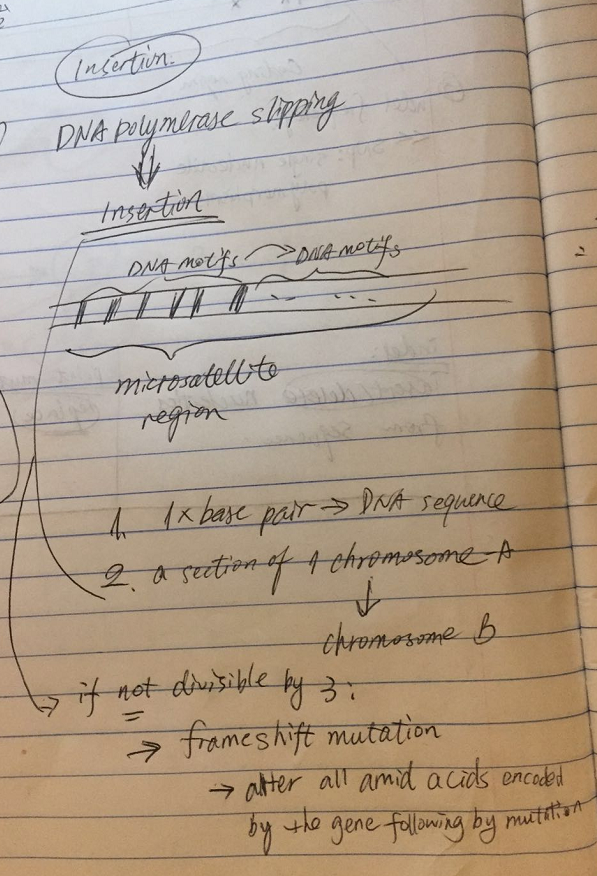 Insertion.
DNA polymerase slipping
Insertion
DNA motifs → DNA motifs
microsatellite
region
1. 1 x base pair → DNA sequence
2. a section of 1 chromosome A
chromosome B
→ if not divisible by 3:
→ frameshift mutation
→ alter all amid acids encoded
by the gene following by mutation